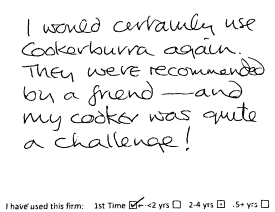 I would certainly use
Cookerburra again.
They were recommended
by a friend — and
my cooker was quite
a challenge!
I have used this firm: 1st Time ☑ <2 yrs ☐ 2-4 yrs ☐ .5+ yrs ☐